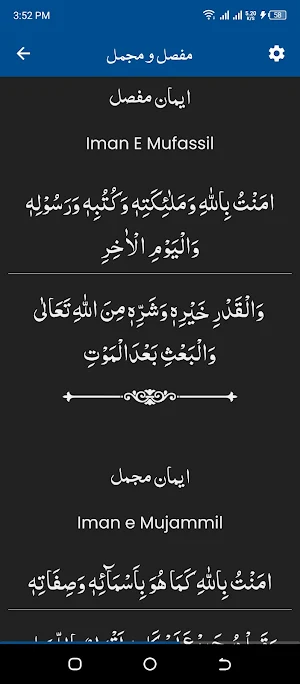 3:52 PM
5.20
K/s
58
مفصل و مجمل
ایمان مفصل
Iman E Mufassil
اٰمَنْتُ بِاللهِ وَمَلٰئِكَتِهٖ وَكُتُبِهٖ وَرَسُوْلِهٖ
وَالْيَوْمِ الْاٰخِرِ
وَالْقَدْرِ خَيْرِهٖ وَشَرِّهٖ مِنَ اللهِ تَعَالٰى
وَالْبَعْثِ بَعْدَالْمَوْتِ
ایمان مجمل
Iman e Mujammil
اٰمَنْتُ بِاللهِ كَمَا هُوَ بِاَسْمَآئِهٖ وَصِفَاتِهٖ